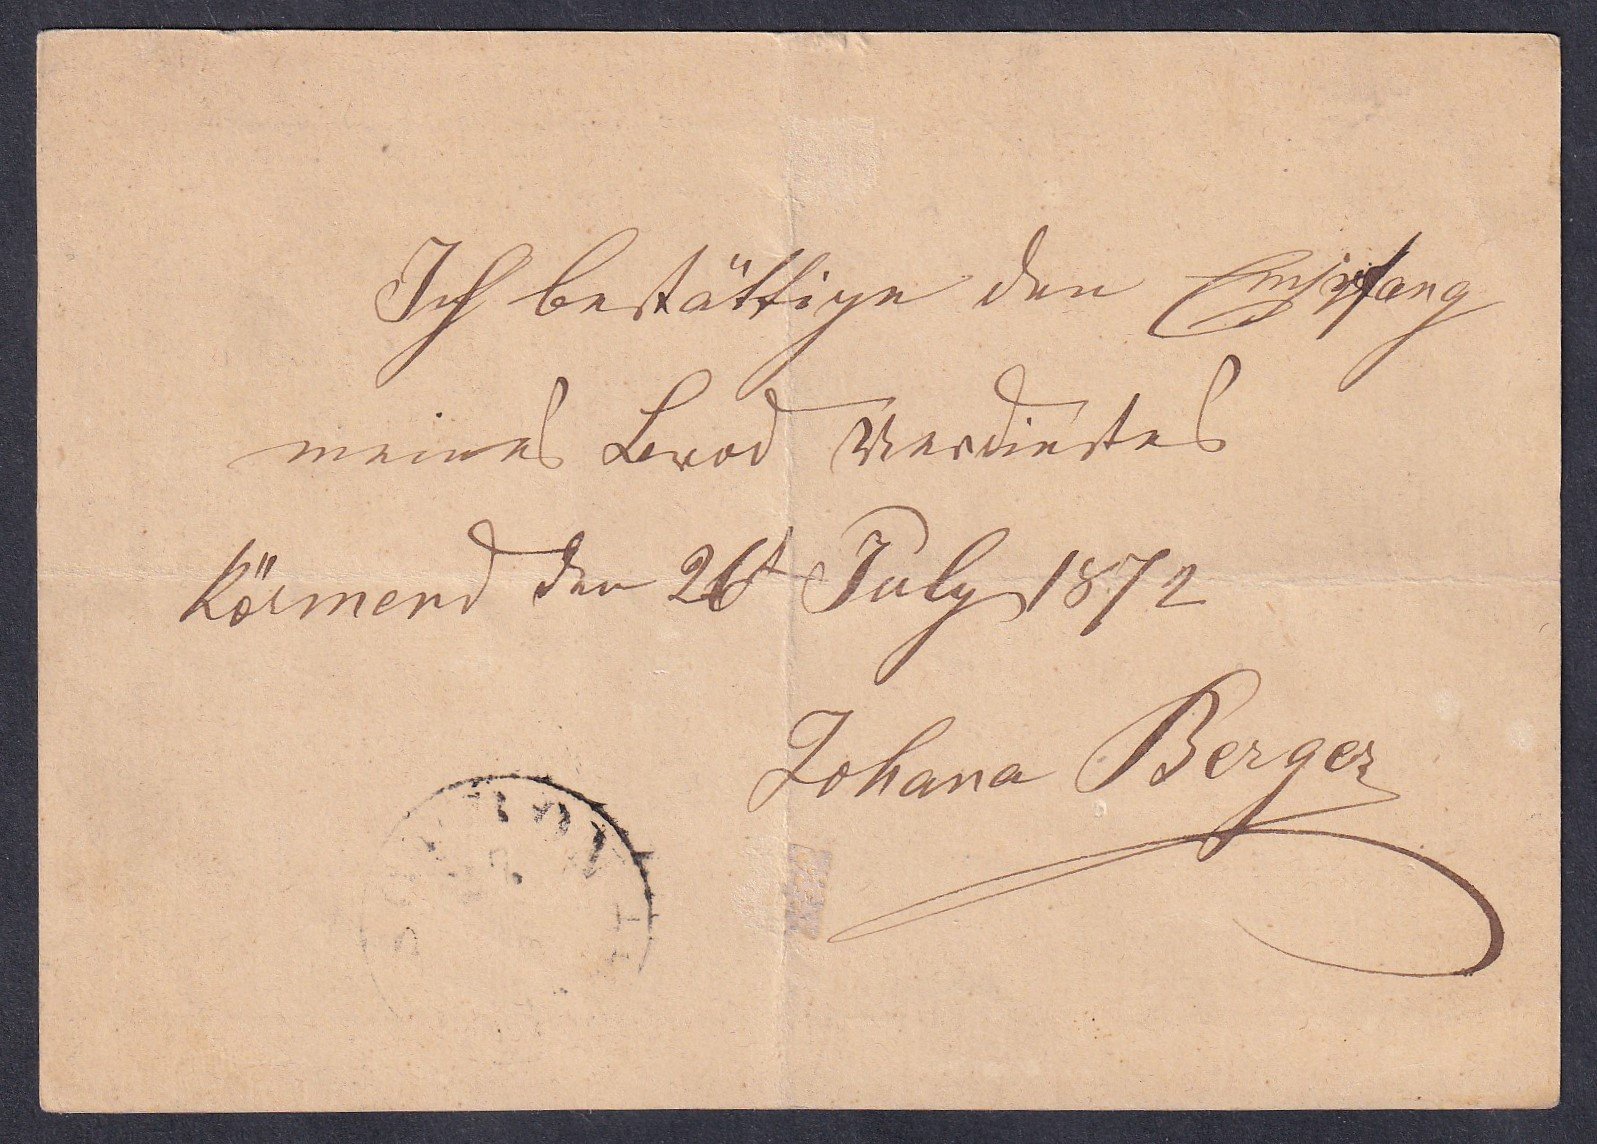 Ich bestättige den Empfang
meines Brod Verdinstes
Körmend den 26t July 1872
Johana Berger